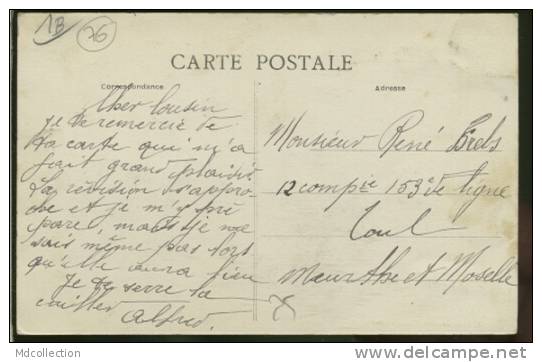 1B 26
CARTE POSTALE
Correspondance
Adresse
Cher Cousin
Je te remercie de
ta carte qui m'a
fait grand plaisir
La révision s'appro-
che et je m'y pré
pare, mais je ne
sais même pas lors
qu'elle aura lieu
Je te serre la
cuiller
Alfred.
Monsieur René
12 compie 153e de ligne
Toul
Meurthe et Moselle
Mdcollection
www.delcampe.net